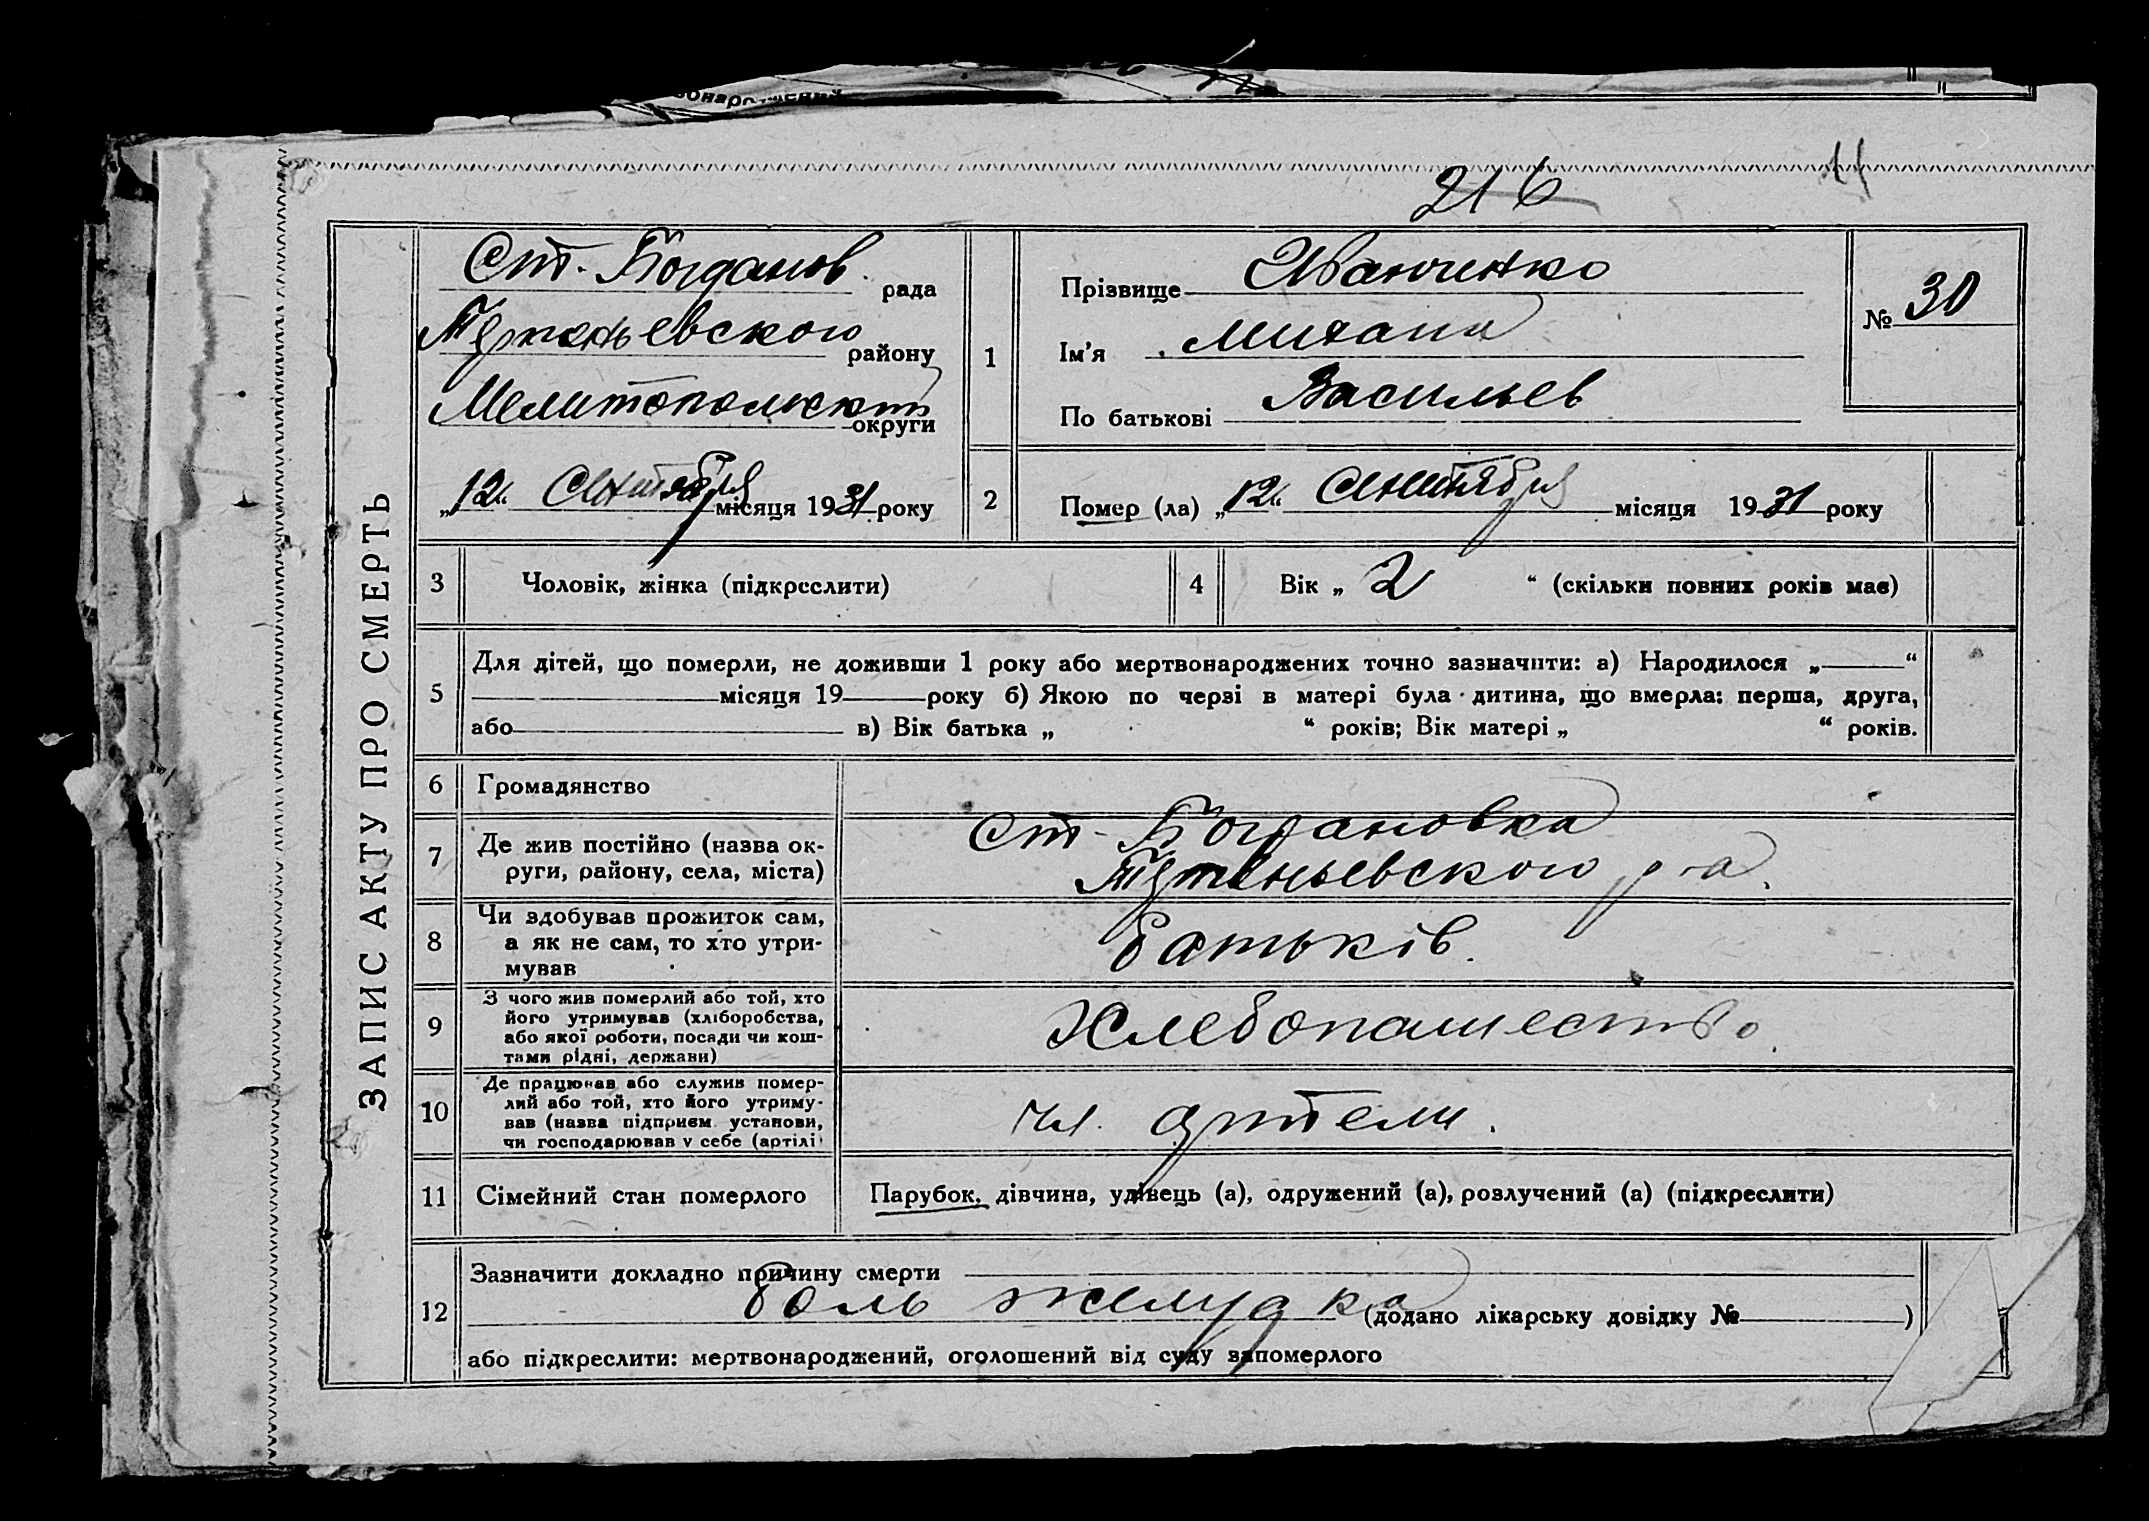 216
Ст. Богданов рада
района
Мелитопольской округи
„12“ Сентября місяця 1931 року
ЗАПИС АКТУ ПРО СМЕРТЬ
1
Прізвище Иванченко
Ім'я Михаил
По батькові Васильев
№ 30
2
Помер (ла) „12“ Сентября місяця 1931 року
3 Чоловік, жінка (підкреслити)
4 Вік „ 2 “ (скільки повних років має)
5
Для дітей, що померли, не доживши 1 року або мертвонароджених точно зазначити: а) Народилося „ “
місяця 19 року б) Якою по черзі в матері була дитина, що вмерла: перша, друга,
або в) Вік батька „ “ років; Вік матері „ “ років.
6 Громадянство
7
Де жив постійно (назва ок-
руги, району, села, міста)
Ст. Богдановка
р-а.
8
Чи здобував прожиток сам,
а як не сам, то хто утри-
мував
батьків.
9
З чого жив померлий або той, хто
його утримував (хліборобства,
або якої роботи, посади чи кош-
тами рідні, держави)
Хлебопашество.
10
Де працював або служив помер-
лий або той, хто його утриму-
вав (назва підприєм. установи,
чи господарював у себе (артілі
чл. артели.
11 Сімейний стан померлого
Парубок, дівчина, удівець (а), одружений (а), розлучений (а) (підкреслити)
12
Зазначити докладно причину смерти
боль желудка (додано лікарську довідку № )
або підкреслити: мертвонароджений, оголошений від суду запомерлого